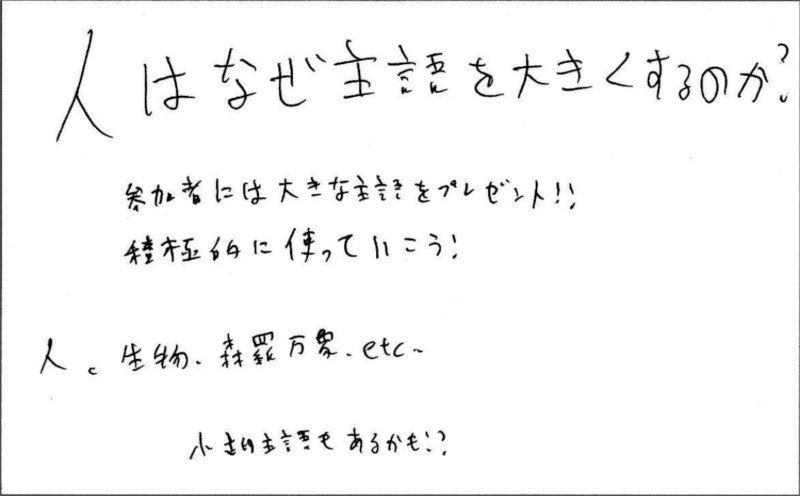 人はなぜ主語を大きくするのか?
参加者には大きな主語をプレゼント!!
積極的に使っていこう!
人、生物、森羅万象、etc~
小さな主語もあるかも!?